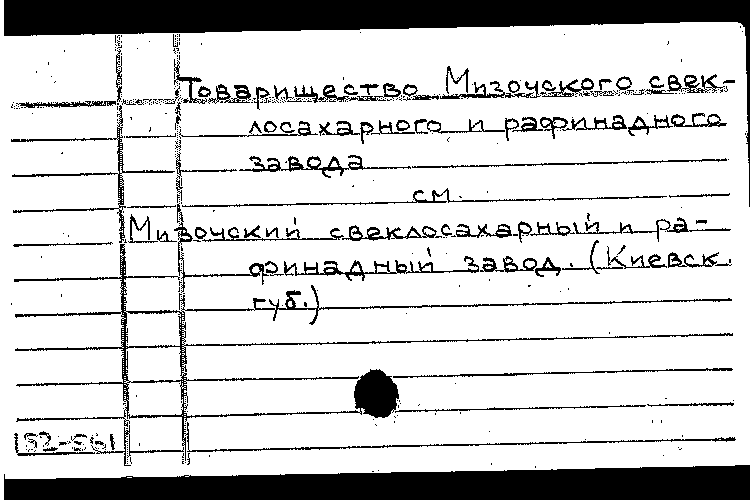 Товарищество Мизочского свек-
лосахарного и рафинадного
завода
см.
Мизочский свеклосахарный и ра-
финадный завод. (Киевск.
губ.)
152-561